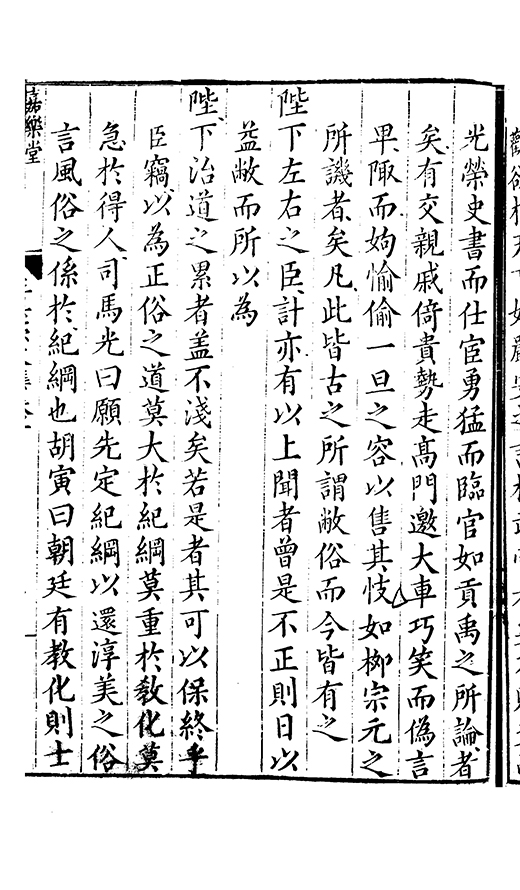 光榮史書而仕宦勇猛而臨官如貢禹之所論者
矣有交親戚倚貴勢走髙門邀大車巧笑而僞言
卑陬而姁愉偷一旦之容以售其忮如桺宗元之
所譏者矣凡此皆古之所謂敝俗而今皆有之
陛下左右之臣計亦有以上聞者曾是不正則日以
益敝而所以為
陛下治道之累者盖不淺矣若是者其可以保終乎
臣竊以為正俗之道莫大於紀綱莫重於敎化莫
急於得人司馬光曰願先定紀綱以還淳美之俗
言風俗之係於紀綱也胡寅曰朝廷有教化則士
嘉樂堂